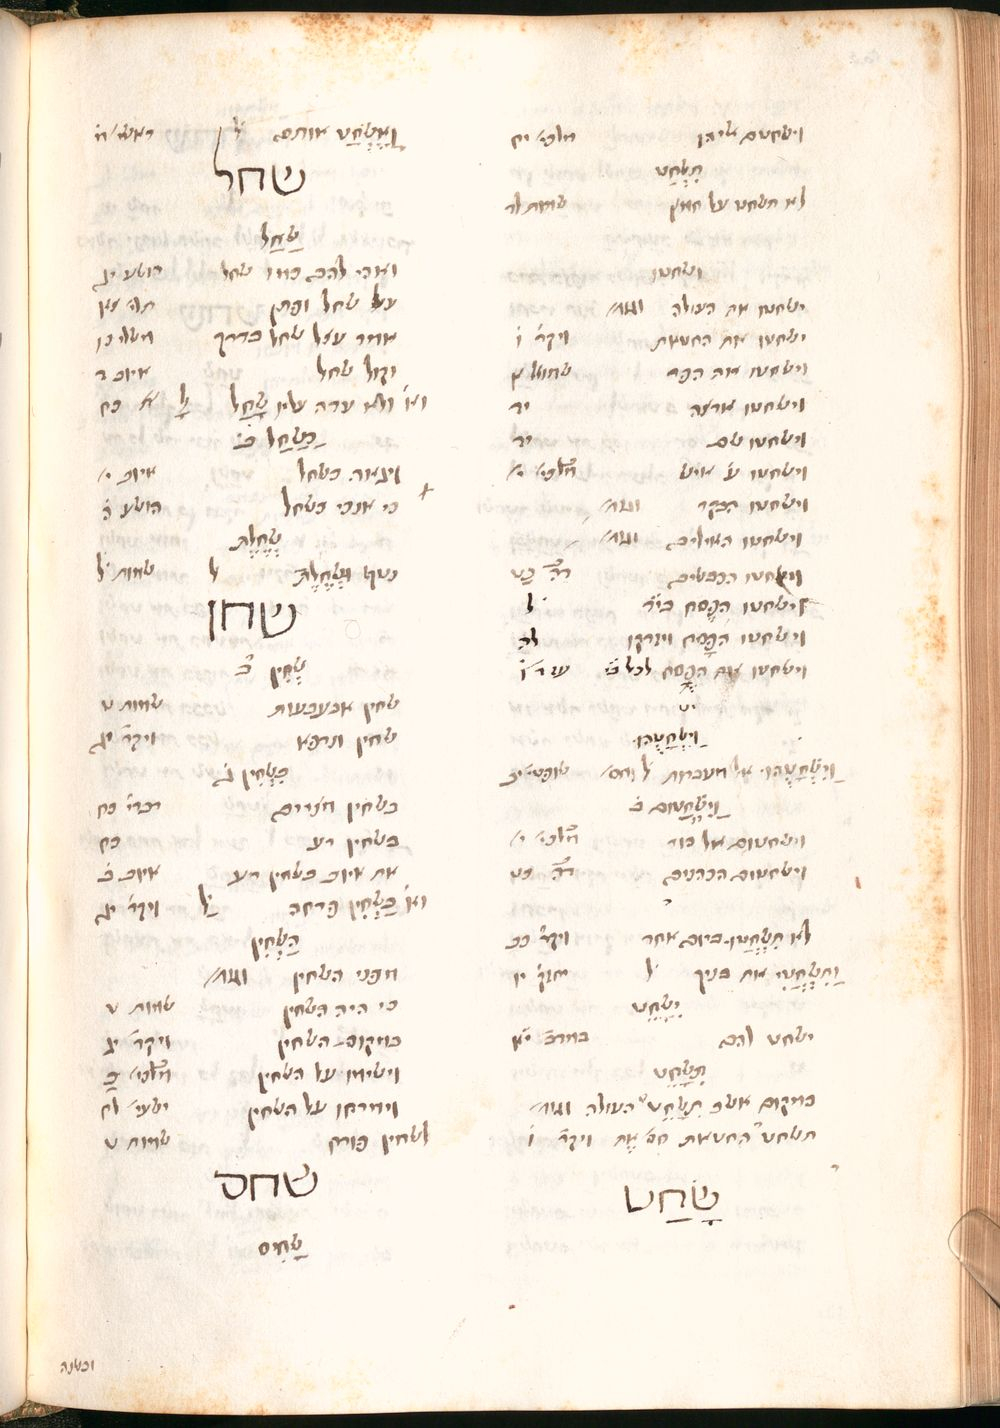 וישחטם אליהו מלכי׳ יח
תִשְׁחַט
לא תשחט על חמץ שמות לד
ושחטו
ישחטו את העולה ושם׳
ישחטו את החטאת ויקר׳ ו
וישחטו את הפר שמוא׳ א
וישחטו ארצה יד
וישחטו שם יד
וישחטו איש מלכי׳ י׳
וישחטו הבקר ושם׳
וישחטו האילים ושם׳
וישחטו הכבשים דה׳ כט
וישחטו הפסח ל
וישחטו הפסח ויזרקו לה
וישחטו את הפסח לכל עזר׳ ו
וַיִשְׁחָטֻהוּ
וַיִשְׁחָטוּהוּ אל מעברות שופטי׳ יב
וַיִשְׁחָטוּם ב
וישחטום אל בור מלכי׳ י׳
וישחטום הכהנים דה׳ כט
לא תִשְׁחֲטוּ ביום אחד ויקר׳ כב
וַתִשְׁחֲטִי את בניך ל יחזק׳ יו
יִשָׁחֵט
ישחט להם במדב׳ יא
תִשָׁחֵט
במקום אשר תִשָׁחֵט העולה ושם׳
תשחט החטאת ויקר׳ ו
שָׁחַט
וָאֶשְׂחַט אותם ל בראש׳ מ
שחל
שַׁחַל
ואהי להם כמו שחל הושע יג
על שחל ופתן תה׳ צא
אמר עצל שחל בדרך משלי כו
וקול שחל איוב ד
וא׳ ולא עדה עליו שָׁחַל ל כח
כַּשַׁחַל ב
ויגאה כשחל איוב י׳
כי אנכי כשחל הושע ה
שְׁחֵלֶת
נטף ושְׁחֵלֶת ל שמות ל
שחן
שְׁחִין ב
שחין אבעבעות שמות ט
שחין ונרפא ויקר׳ יג
בִּשְׁחִין ג
בשחין מצרים דברי׳ כח
בשחין רע כח
את איוב בשחין רע איוב ב
וא׳ בִּשְׁחִין פרחה ל ויקר׳ יג
הַשְׁחִין
מפני השחין ושם׳
כי היה השחין שמות ט
במקום השחין ויקר׳ יג
וישימו על השחין מלכי׳ כ
וימרחו על השחין ישעי׳ לח
לשחין פורח שמות ט
שחס
שָׁחִיס
ובשנה